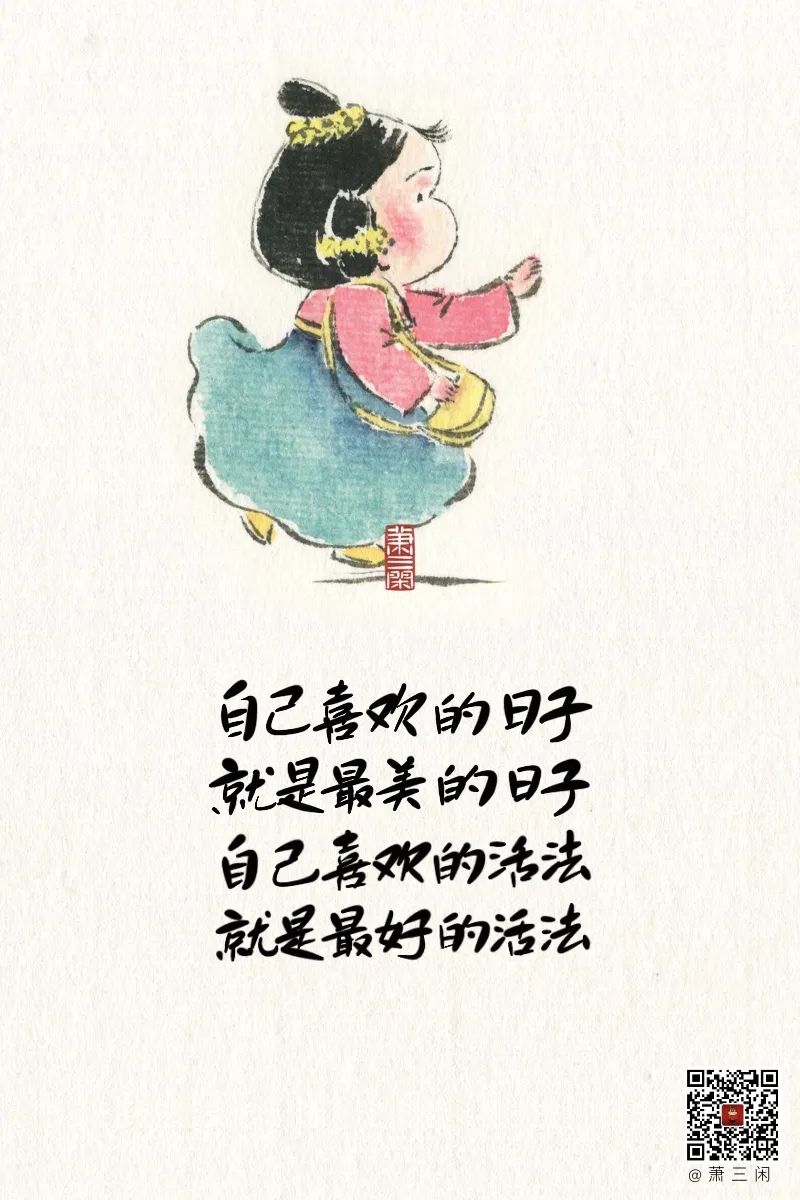 萧三闲
自己喜欢的日子
就是最美的日子
自己喜欢的活法
就是最好的活法
@萧三闲